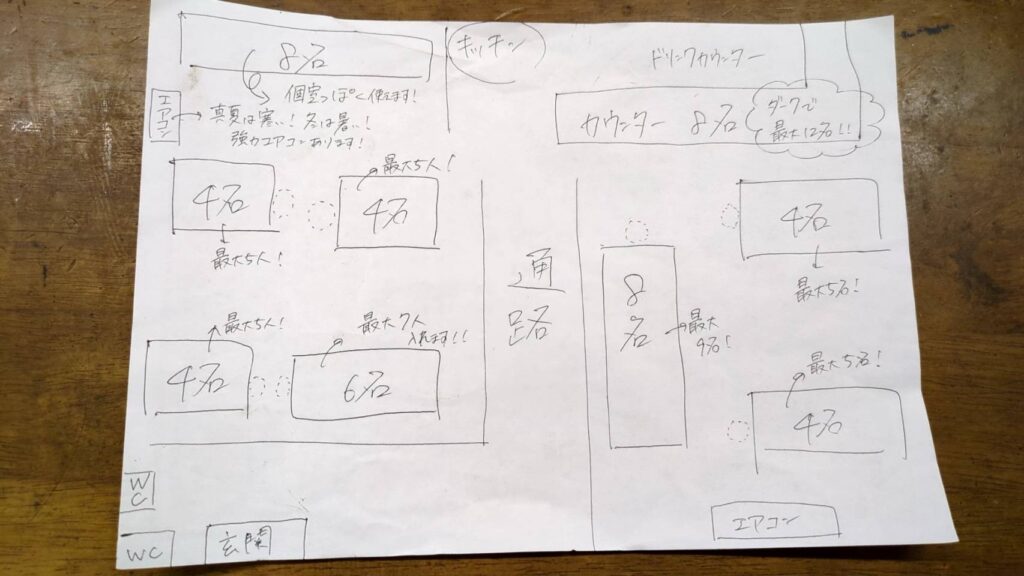 8名
個室っぽく使えます!
エアコン
真夏は寒い!冬は暑い!
強力エアコンあります!
キッチン
ドリンクカウンター
カウンター 8名
ダークで
最大12名!!
4名
最大5人!
最大5人!
4名
最大5人!
4名
最大7人
入れます!!
6名
通路
8名
最大
9名!
4名
最大5名!
最大5名!
4名
エアコン
WC
WC
玄関